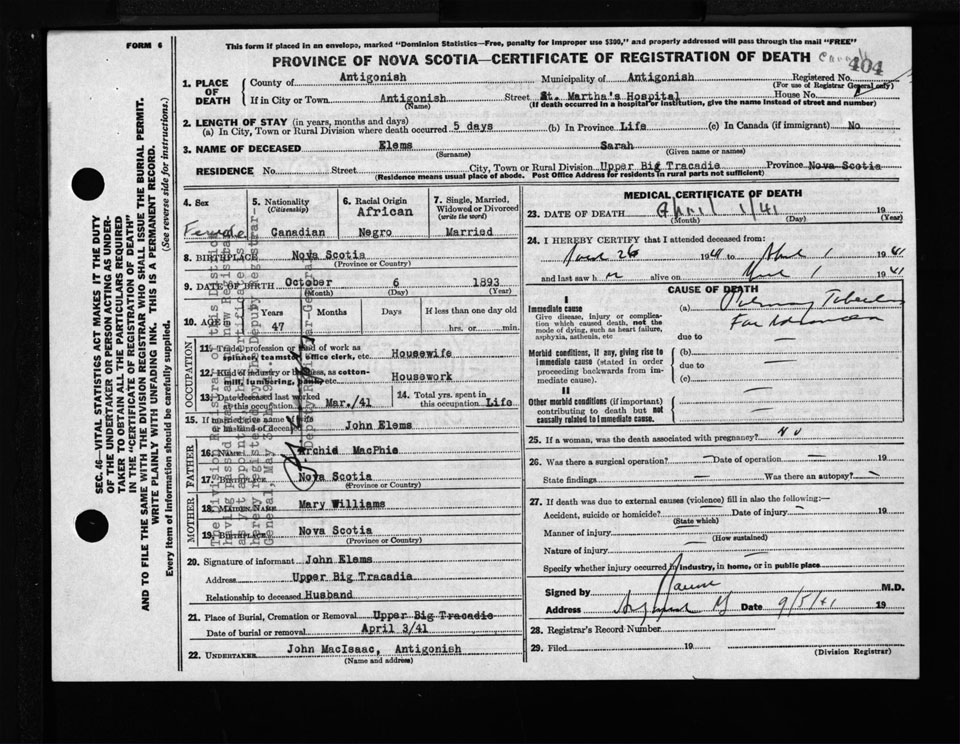 FORM 6
This form if placed in an envelope, marked "Dominion Statistics—Free, penalty for improper use $300," and properly addressed will pass through the mail "FREE"
PROVINCE OF NOVA SCOTIA—CERTIFICATE OF REGISTRATION OF DEATH
404
SEC. 46—VITAL STATISTICS ACT MAKES IT THE DUTY
OF THE UNDERTAKER OR PERSON ACTING AS UNDER-
TAKER TO OBTAIN ALL THE PARTICULARS REQUIRED
IN THE "CERTIFICATE OF REGISTRATION OF DEATH"
AND TO FILE THE SAME WITH THE DIVISION REGISTRAR WHO SHALL ISSUE THE BURIAL PERMIT.
WRITE PLAINLY WITH UNFADING INK. THIS IS A PERMANENT RECORD.
Every item of Information should be carefully supplied. (See reverse side for instructions.)
1. PLACE OF DEATH
County of Antigonish Municipality of Antigonish Registered No.
(For use of Registrar General only)
If in City or Town Antigonish Street St. Martha's Hospital House No.
(Name) (If death occurred in a hospital or institution, give the name instead of street and number)
2. LENGTH OF STAY (in years, months and days)
(a) In City, Town or Rural Division where death occurred 5 days (b) In Province Life (c) In Canada (if immigrant) No
3. NAME OF DECEASED Elems Sarah
(Surname) (Given name or names)
RESIDENCE No. Street City, Town or Rural Division Upper Big Tracadie Province Nova Scotia
(Residence means usual place of abode. Post Office Address for residents in rural parts not sufficient)
4. Sex Female
5. Nationality (Citizenship) Canadian
6. Racial Origin African Negro
7. Single, Married, Widowed or Divorced (write the word) Married
8. BIRTHPLACE Nova Scotia
(Province or Country)
9. DATE OF BIRTH October 6 1893
(Month) (Day) (Year)
10. AGE Years 47 Months Days If less than one day old
hrs. or min.
OCCUPATION
11. Trade, profession or kind of work as
spinner, teamster, office clerk, etc. Housewife
12. Kind of industry or business, as cotton-
mill, lumbering, bank, etc. Housework
13. Date deceased last worked
at this occupation Mar./41
14. Total yrs. spent in
this occupation Life
15. If married give name of wife
or husband of deceased John Elems
FATHER
16. Name Archid MacPhie
17. Birthplace Nova Scotia
(Province or Country)
MOTHER
18. Maiden Name Mary Williams
19. Birthplace Nova Scotia
(Province or Country)
20. Signature of informant John Elems
Address Upper Big Tracadia
Relationship to deceased Husband
21. Place of Burial, Cremation or Removal Upper Big Tracadie
Date of burial or removal April 3/41
22. UNDERTAKER John MacIsaac, Antigonish
(Name and address)
MEDICAL CERTIFICATE OF DEATH
23. DATE OF DEATH April 1/41 19
(Month) (Day) (Year)
24. I HEREBY CERTIFY that I attended deceased from:
26 1941 to April 1 1941
and last saw her alive on 1 1941
CAUSE OF DEATH
I
Immediate cause
Give disease, injury or complica-
tion which caused death, not the
mode of dying, such as heart failure,
asphyxia, asthenia, etc.
(a) Pulmonary
Far Advanced
due to
Morbid conditions, if any, giving rise to
immediate cause (stated in order
proceeding backwards from im-
mediate cause).
(b)
due to
(c)
II
Other morbid conditions (if important)
contributing to death but not
causally related to immediate cause.
25. If a woman, was the death associated with pregnancy? No
26. Was there a surgical operation? Date of operation
State findings Was there an autopsy?
27. If death was due to external causes (violence) fill in also the following:—
Accident, suicide or homicide? Date of injury 19
(State which)
Manner of injury
(How sustained)
Nature of injury
Specify whether injury occurred in industry, in home, or in public place
Signed by M.D.
Address Date 9/5/41 19
28. Registrar's Record Number
29. Filed 19
(Division Registrar)